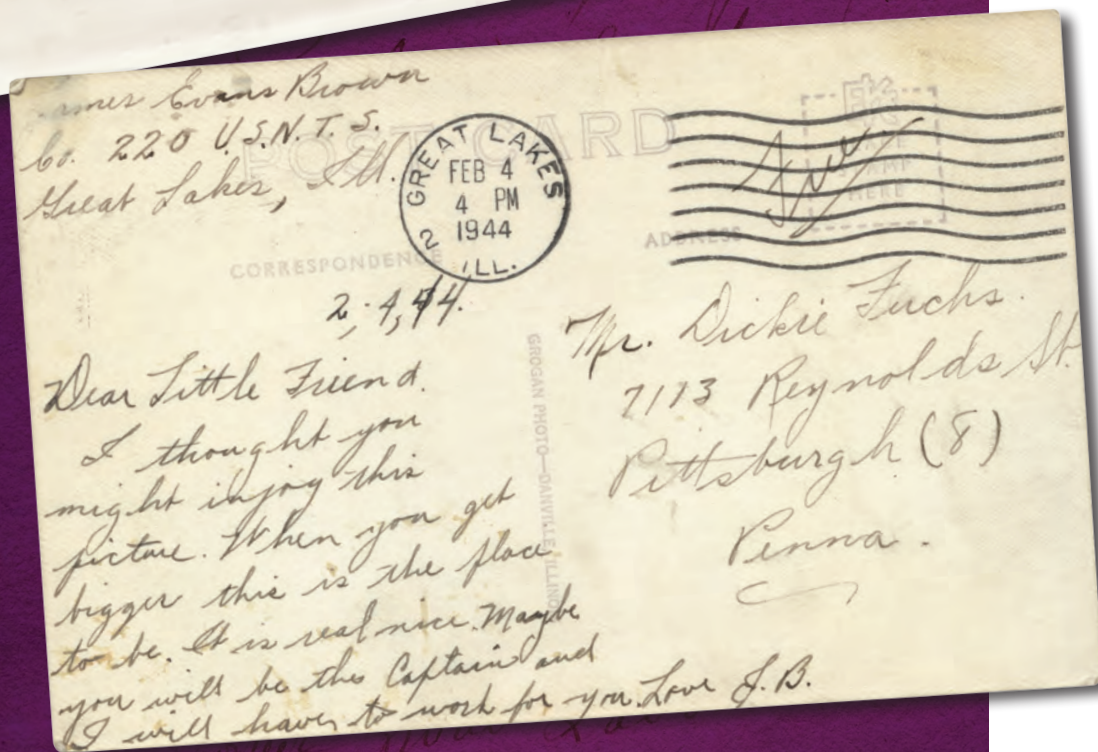 James Evans Brown
Co. 220 U.S.N.T.S.
Great Lakes, Ill.
POST CARD
GREAT LAKES
FEB 4
4 PM
1944
2
ILL.
Free
STAMP
HERE
CORRESPONDENCE
ADDRESS
2,4,44.
Dear Little Friend.
I thought you
might injoy this
picture. When you get
bigger this is the place
to be. It is real nice. Maybe
you will be the Captain and
I will have to work for you. Love J.B.
GROGAN PHOTO—DANVILLE, ILLINOIS
Mr. Dickie Fuchs.
7173 Reynolds St.
Pittsburgh (8)
Penna.